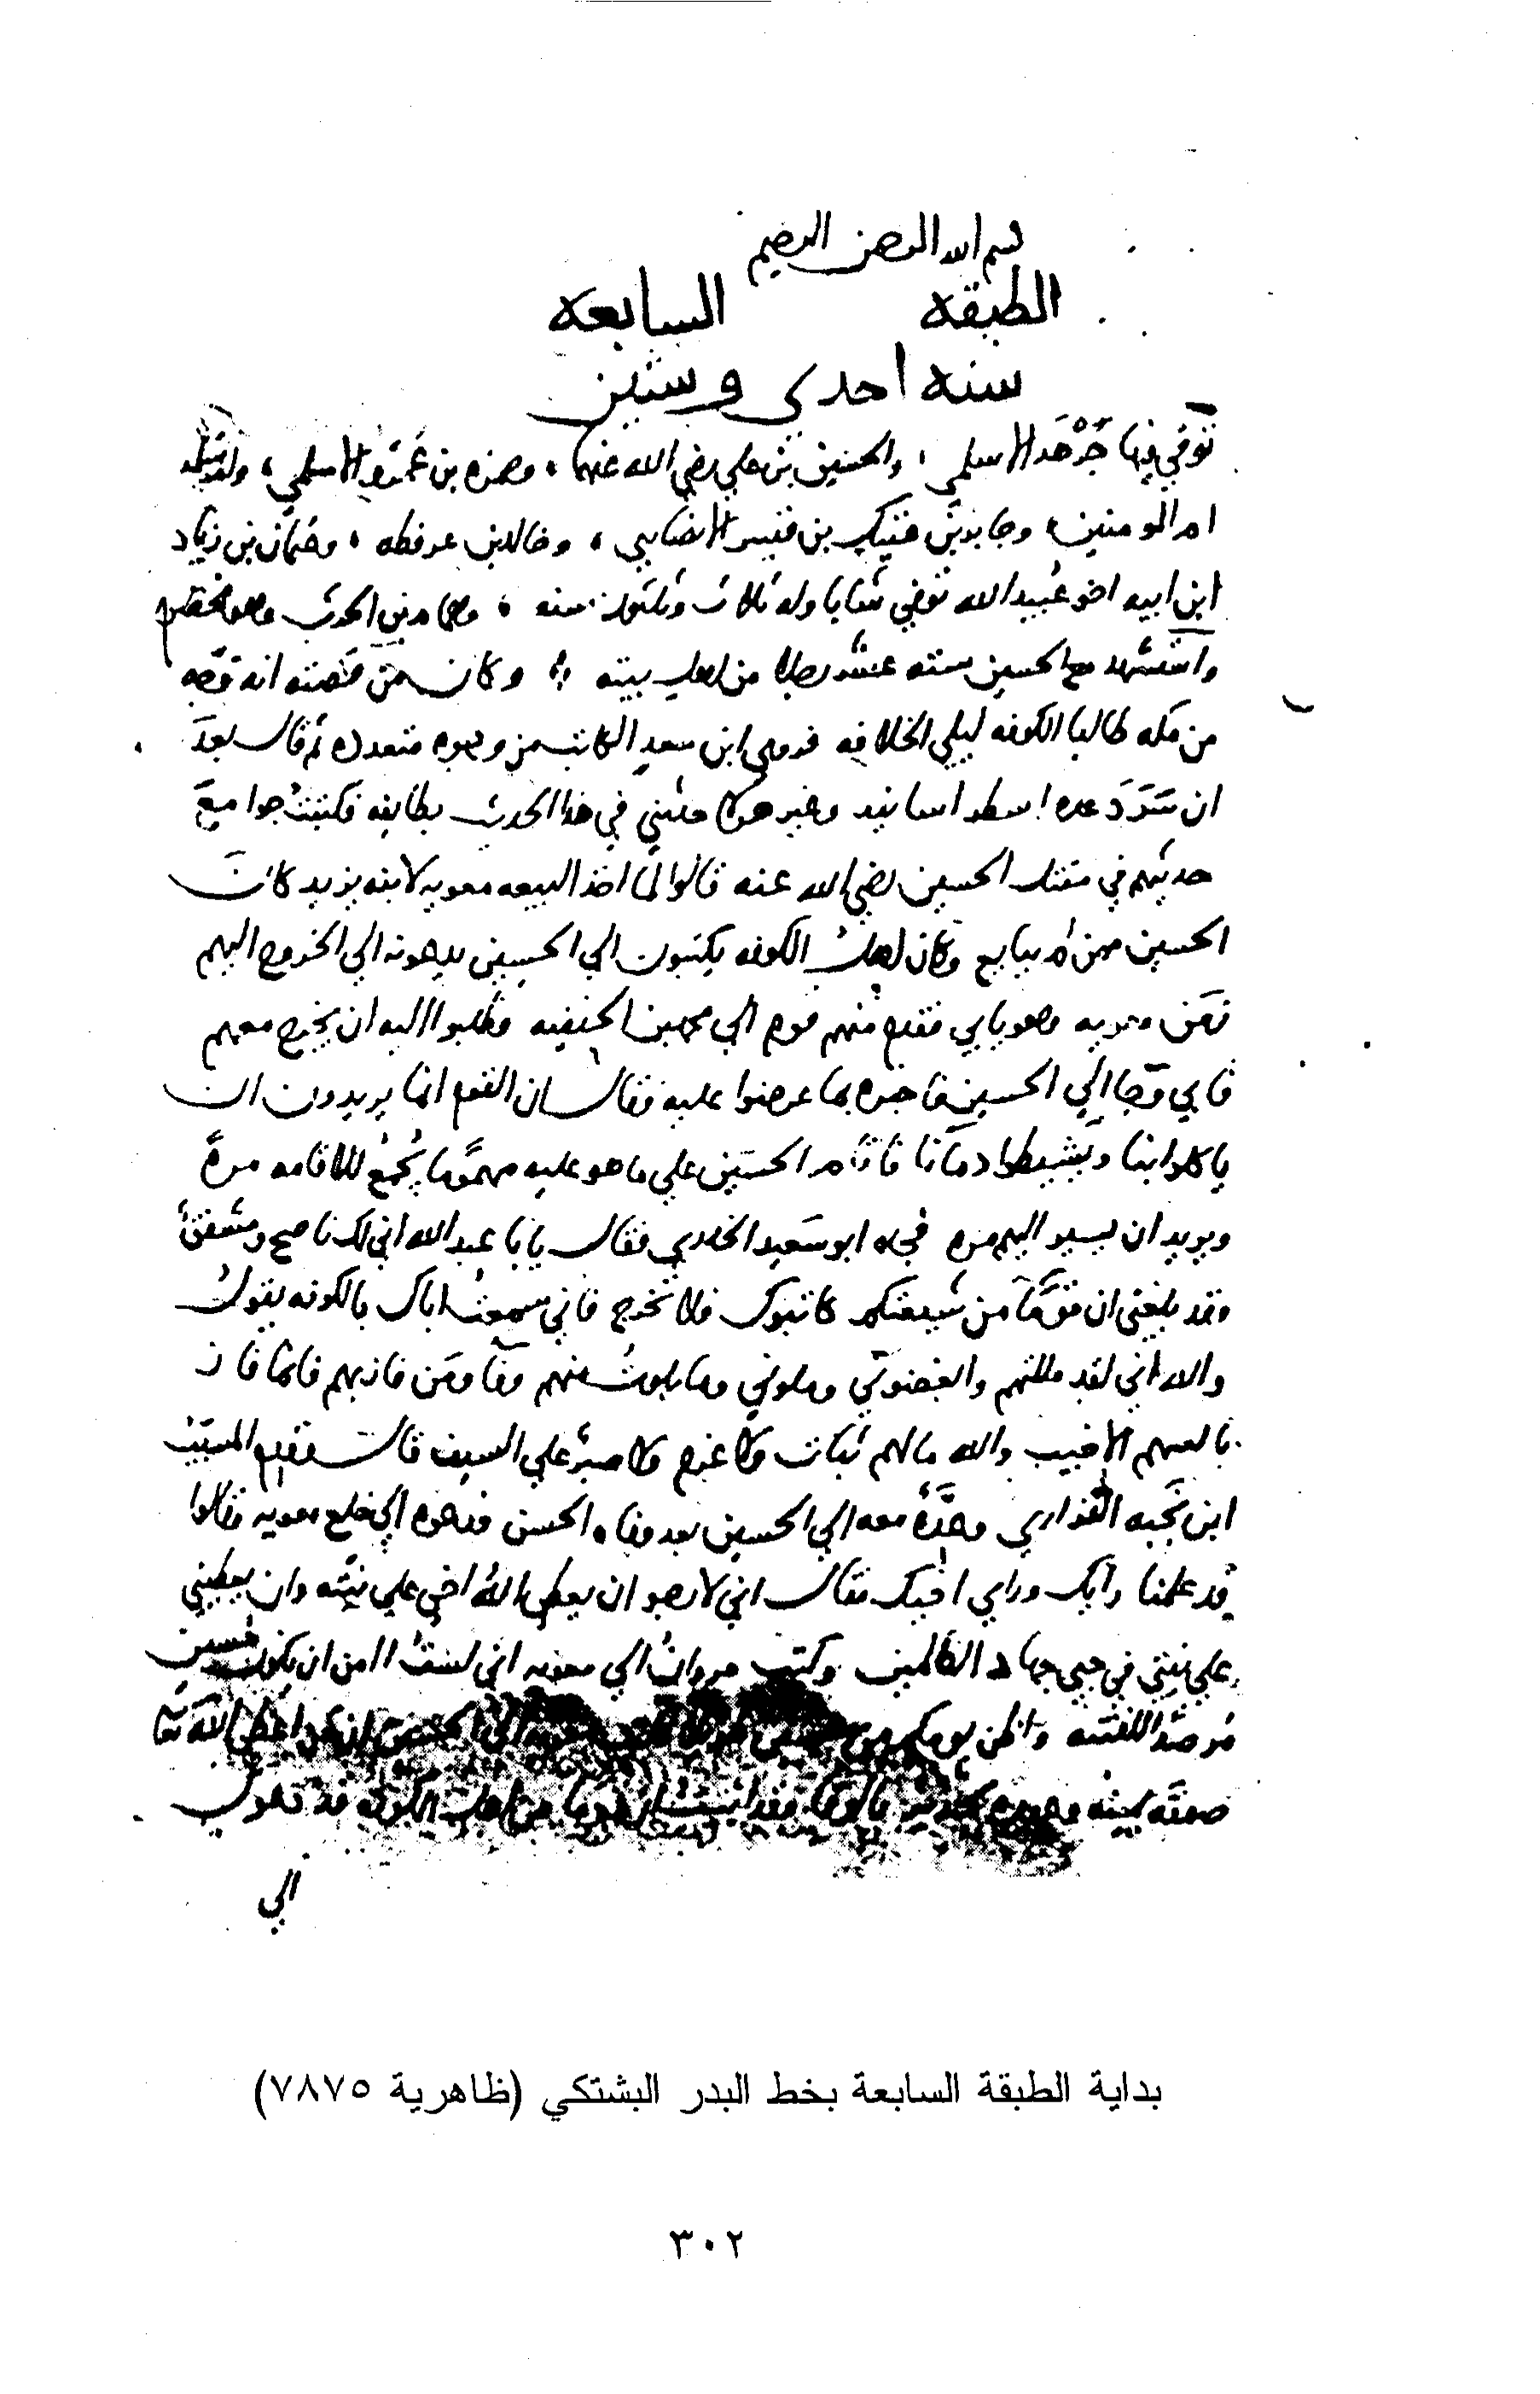 بسم الله الرحمن الرحيم
الطبقه السابعه
سنه احدى وستين
توفي فيها جَرْهَد الاسلمي ، والحسين بن علي رضي الله عنهما ، وحمزه بن عَمرو الاسلمي ، وام سلمه
ام المومنين ، وجابر بن عتيك بن قيس الانصاري ، وخالد بن عرفطه ، وعثمان بن زياد
ابن ابيه اخو عُبيد الله توفي شابا وله ثلاث وثلثون سنه ، وهمام بن الحرث وهو مخضرم
واستشهد مع الحسين سته عشر رجلا من اهل بيته ، وكان من قصته انه توجه
من مكه طالبا الكوفه ليلي الخلافه فروى ابن سعد الكاتب من وجوه متعدده ثم قال بعد
ان سَرَدَ عده اسطر اسانيد وغير هولا حدثني في هذا الحديث بطايفه فكتبتُ جوامع
حديثهم في مقتل الحسين رضي الله عنه قالوا لما اخذ البيعه معويه لابنه يزيد كان
الحسين ممن لم يبايع وكان اهل الكوفه يكتبون الي الحسين يدعونه الي الخروج اليهم
زمن معويه وهو يابي فقدم منهم قوم الي محمد بن الحنفيه وطلبوا اليه ان يخرج معهم
فابي وجا الي الحسين فاخبره بما عرضوا عليه فقال ان القوم انما يريدون ان
ياكلوا بنا ويشيطوا دمانا فاقام الحسين علي ما هو عليه مهمومًا يُجمعُ للاقامه مرةً
ويريد ان يسير اليهم مره فجاه ابو سَعيد الخدري فقال يابا عبد الله اني لك ناصح ومشفق
وقد بلغني ان قومًا من شيعتكم كاتبوك فلا تخرج فاني سمعتُ اباك بالكوفه يقول
والله اني لقد مللتهم وابغضوني وملوني وما بلوتُ منهم وفا ومَن فاز بهم فانما فاز
بالسهم الاخيب والله ما لهم ثبات ولا عزم ولا صبرٌ علي السيف قال وقدم المسيب
ابن نَجَبه الفزاري وعِدَّةٌ معه الي الحسين بعد وفاه الحسن فدعوه الي خلع معويه وقالوا
قد علمنا رايك وراي اخيك فقال اني لارجو ان يعطي اللهُ اخي علي نيته وان يعطيني
علي نيتي في حبي جهاد الظالمين وكتب مروانُ الي معويه اني لستُ اامن ان يكون حسين
مُرصدًا للفتنه واظن يومكم من حسين طويلا فكتب معويه الي الحسين ان من اعطي الله
صفقه يمينه وعهده لجدير بالوفا وقد انبيتُ ان قوما من اهل الكوفه قد دعوك
الي
بداية الطبقة السابعة بخط البدر البشتكي (ظاهرية ٧٨٧٥)
٣٠٢